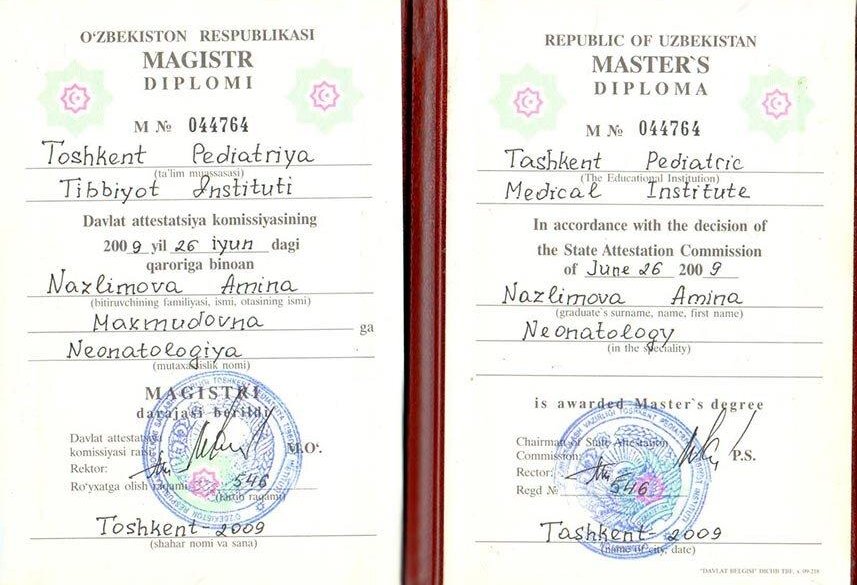 O'ZBEKISTON RESPUBLIKASI
MAGISTR
DIPLOMI
M № 044764
Toshkent Pediatriya
(ta'lim muassasasi)
Tibbiyot Instituti
Davlat attestatsiya komissiyasining
2009 yil 26 iyun dagi
qaroriga binoan
Nazlimova Amina
(bitiruvchining familiyasi, ismi, otasining ismi)
Maxmudovna ga
Neonatologiya
(mutaxassislik nomi)
MAGISTRI
darajasi berildi
Davlat attestatsiya
komissiyasi raisi M.O'.
Rektor:
Ro'yxatga olish raqami 546
(tartib raqami)
Toshkent-2009
(shahar nomi va sana)
REPUBLIC OF UZBEKISTAN
MASTER`S
DIPLOMA
M № 044764
Tashkent Pediatric
(The Educational Institution)
Medical Institute
In accordance with the decision of
the State Attestation Commission
of June 26 2009
Nazlimova Amina
(graduate`s surname, name, first name)
Neonatology
(in the speciality)
is awarded Master`s degree
Chairman of State Attestation
Commission: P.S.
Rector:
Regd № 546
Tashkent-2009
(name of city, date)